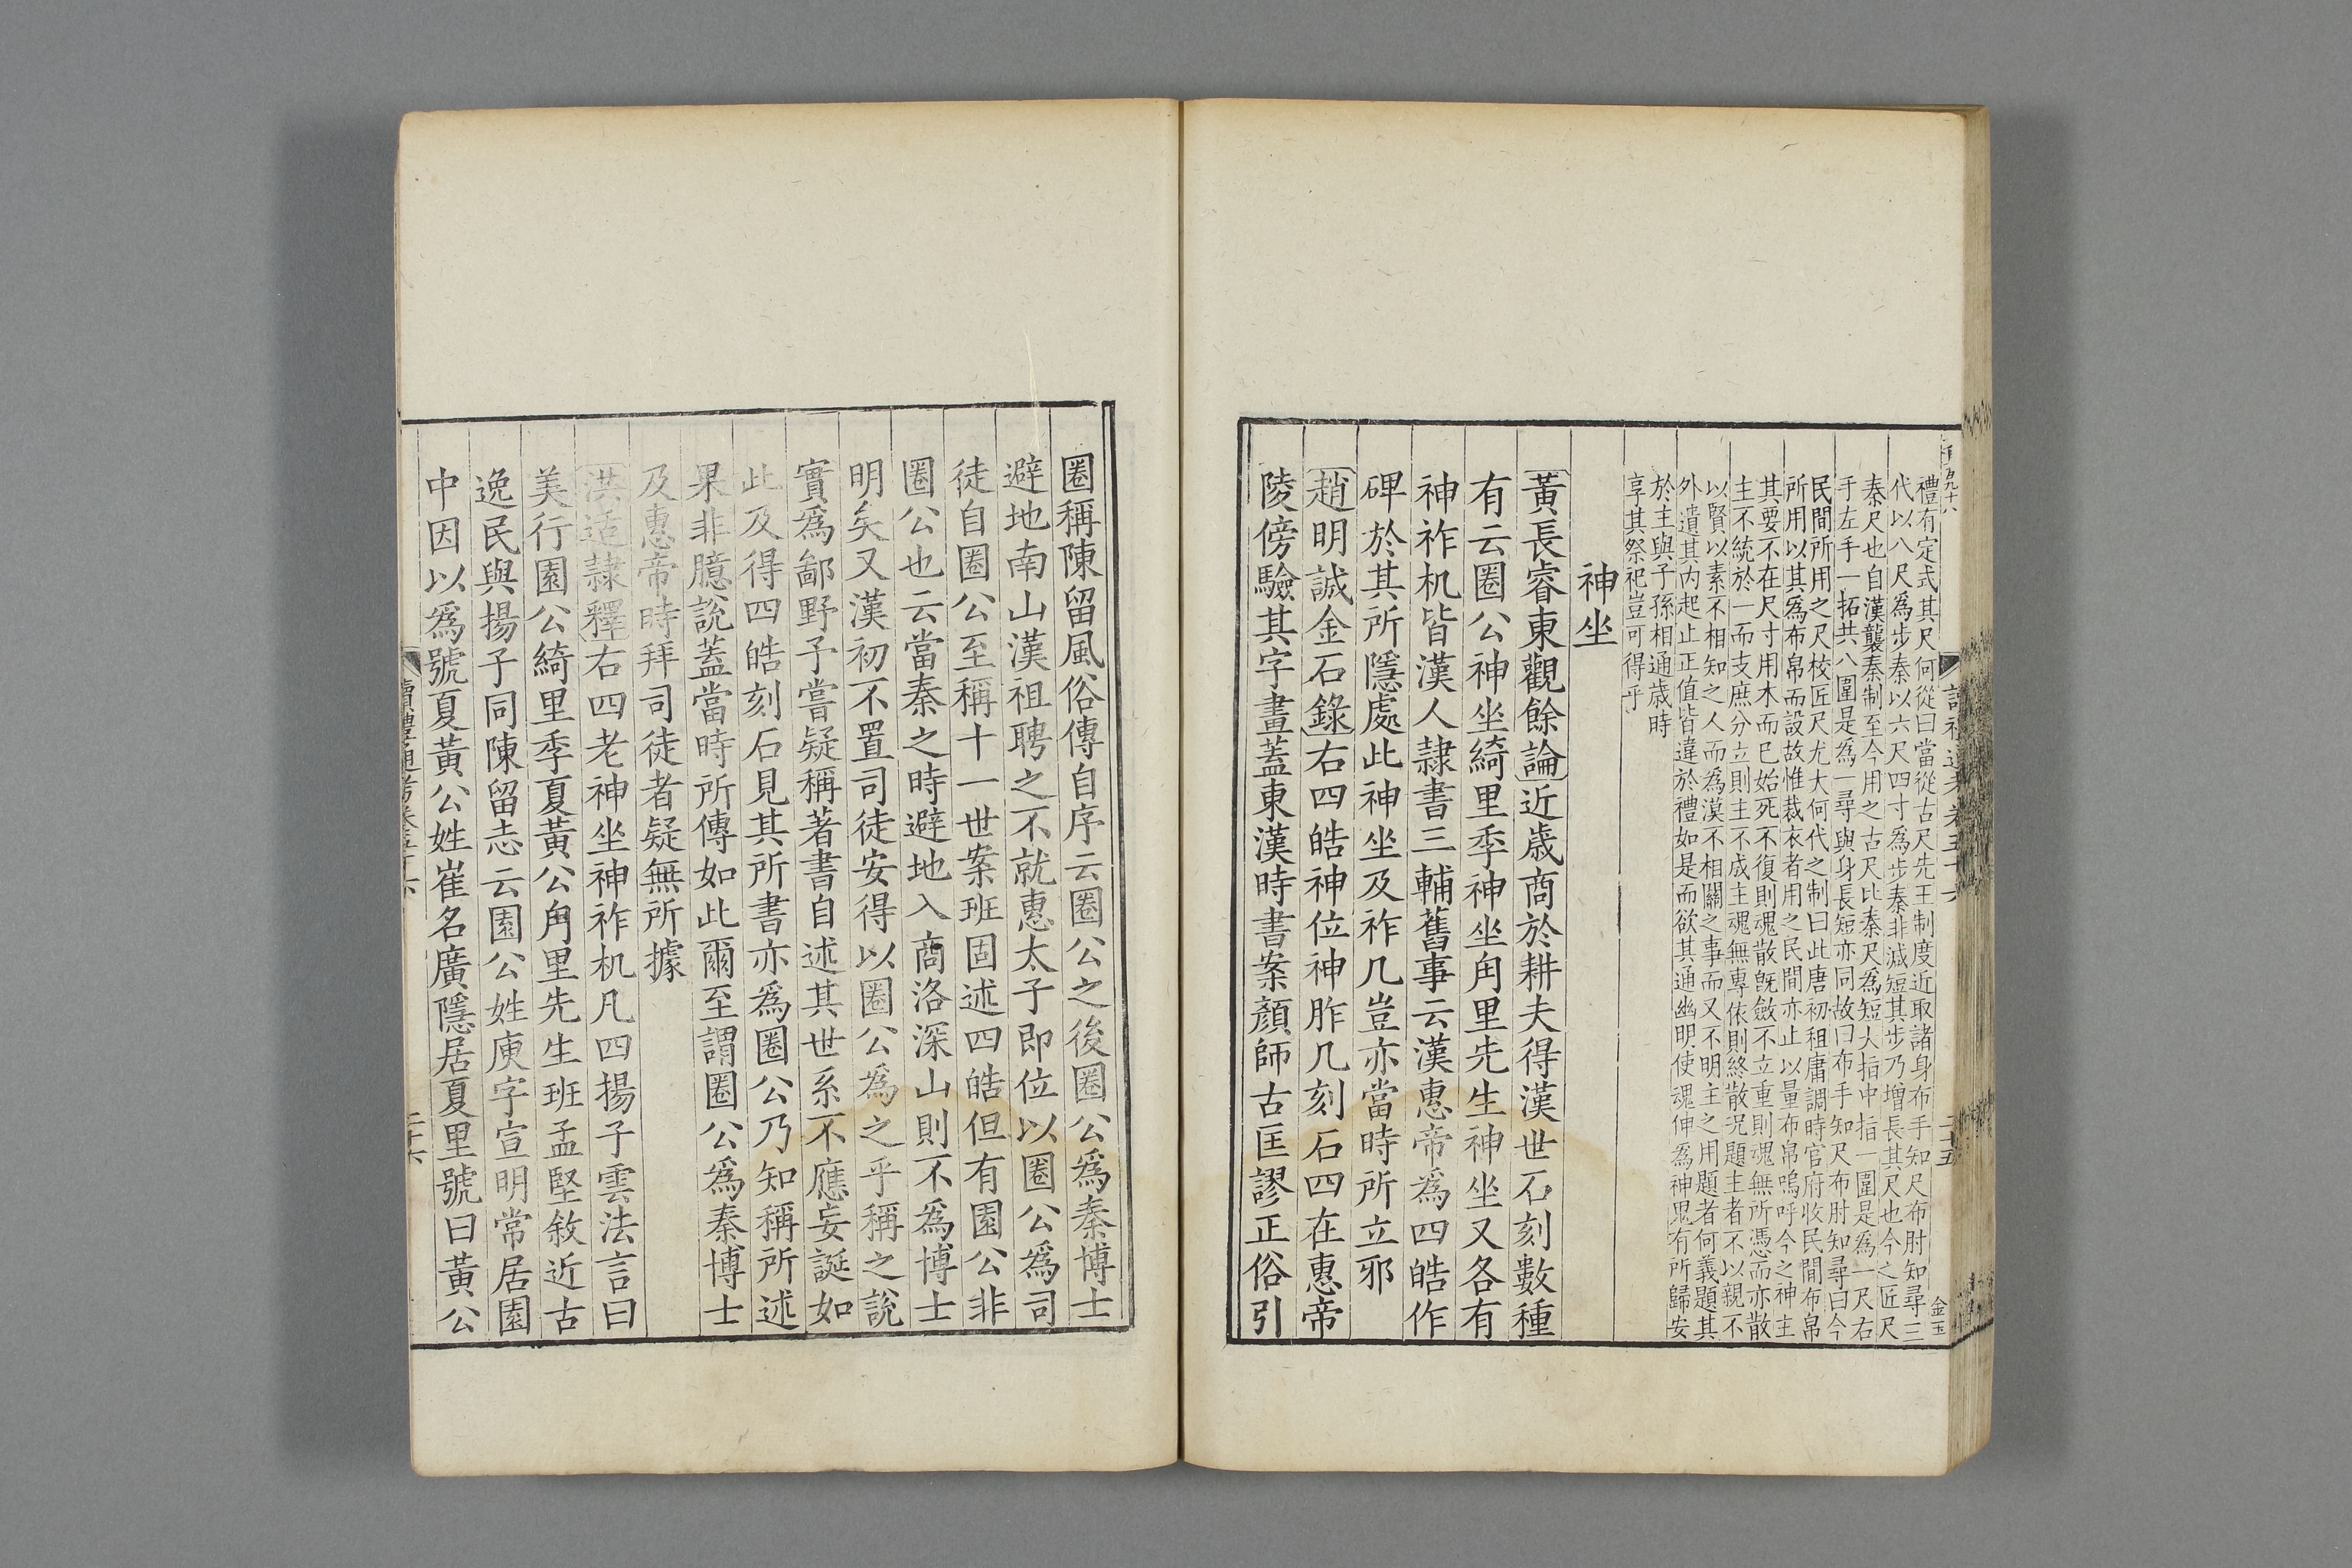 禮有定式其尺何從曰當從古尺先王制度近取諸身布手知尺布肘知尋三
代以八尺爲步秦以六尺四寸爲步秦非減短其步乃增長其尺也今之匠尺
秦尺也自漢襲秦制至今用之古尺比秦尺爲短大指中指一圍是爲一尺右
手左手一拓共八圍是爲一尋與身長短亦同故曰布手知尺布肘知尋曰今
民間所用之尺校匠尺尤大何代之制曰此唐初租庸調時官府收民間布帛
所用以其爲布帛而設故惟裁衣者用之民間亦止以量布帛嗚呼今之神主
其要不在尺寸用木而已始死不復則魂散旣斂不立重則魂無所憑而亦散
主不統於一而支庶分立則主不成主魂無專依則終散況題主者不以親不
以賢以素不相知之人而爲漠不相關之事而又不明主之用題者何義題其
外遺其內起止正值皆違於禮如是而欲其通幽明使魂伸爲神鬼有所歸安
於主與子孫相通歲時
享其祭祀豈可得乎
神坐
黃長睿東觀餘論近歲商於耕夫得漢世石刻數種
有云圈公神坐綺里季神坐甪里先生神坐又各有
神祚机皆漢人隷書三輔舊事云漢惠帝爲四皓作
碑於其所隱處此神坐及祚几豈亦當時所立邪
趙明誠金石錄右四皓神位神胙几刻石四在惠帝
陵傍驗其字畫蓋東漢時書案顏師古匡謬正俗引
圈稱陳留風俗傳自序云圈公之後圈公爲秦博士
避地南山漢祖聘之不就惠太子即位以圈公爲司
徒自圈公至稱十一世案班固述四皓但有園公非
圈公也云當秦之時避地入商洛深山則不爲博士
明矣又漢初不置司徒安得以圈公爲之乎稱之說
實爲鄙野予嘗疑稱著書自述其世系不應妄誕如
此及得四皓刻石見其所書亦爲圈公乃知稱所述
果非臆說蓋當時所傳如此爾至謂圈公爲秦博士
及惠帝時拜司徒者疑無所據
洪适隷釋右四老神坐神祚机凡四揚子雲法言曰
美行園公綺里季夏黃公甪里先生班孟堅敘近古
逸民與揚子同陳留志云園公姓庾字宣明常居園
中因以爲號夏黃公姓崔名廣隱居夏里號曰黃公
讀禮通考卷五十六
二十六